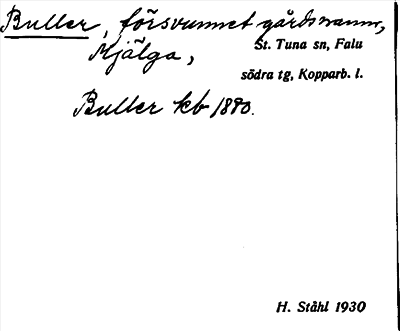 Buller, försvunnet gårdsnamn,
Mjälga, St. Tuna sn, Falu
södra tg, Kopparb. l.
Buller kb 1880.
H. Ståhl 1930